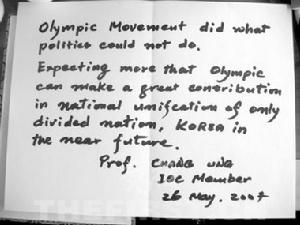 Olympic Movement did what
politics could not do.
Expecting more that Olympic
can make a great contribution
in national unification of only
divided nation, KOREA in
the near future.
Prof. CHANG UNG
IOC Member
26 May. 2007